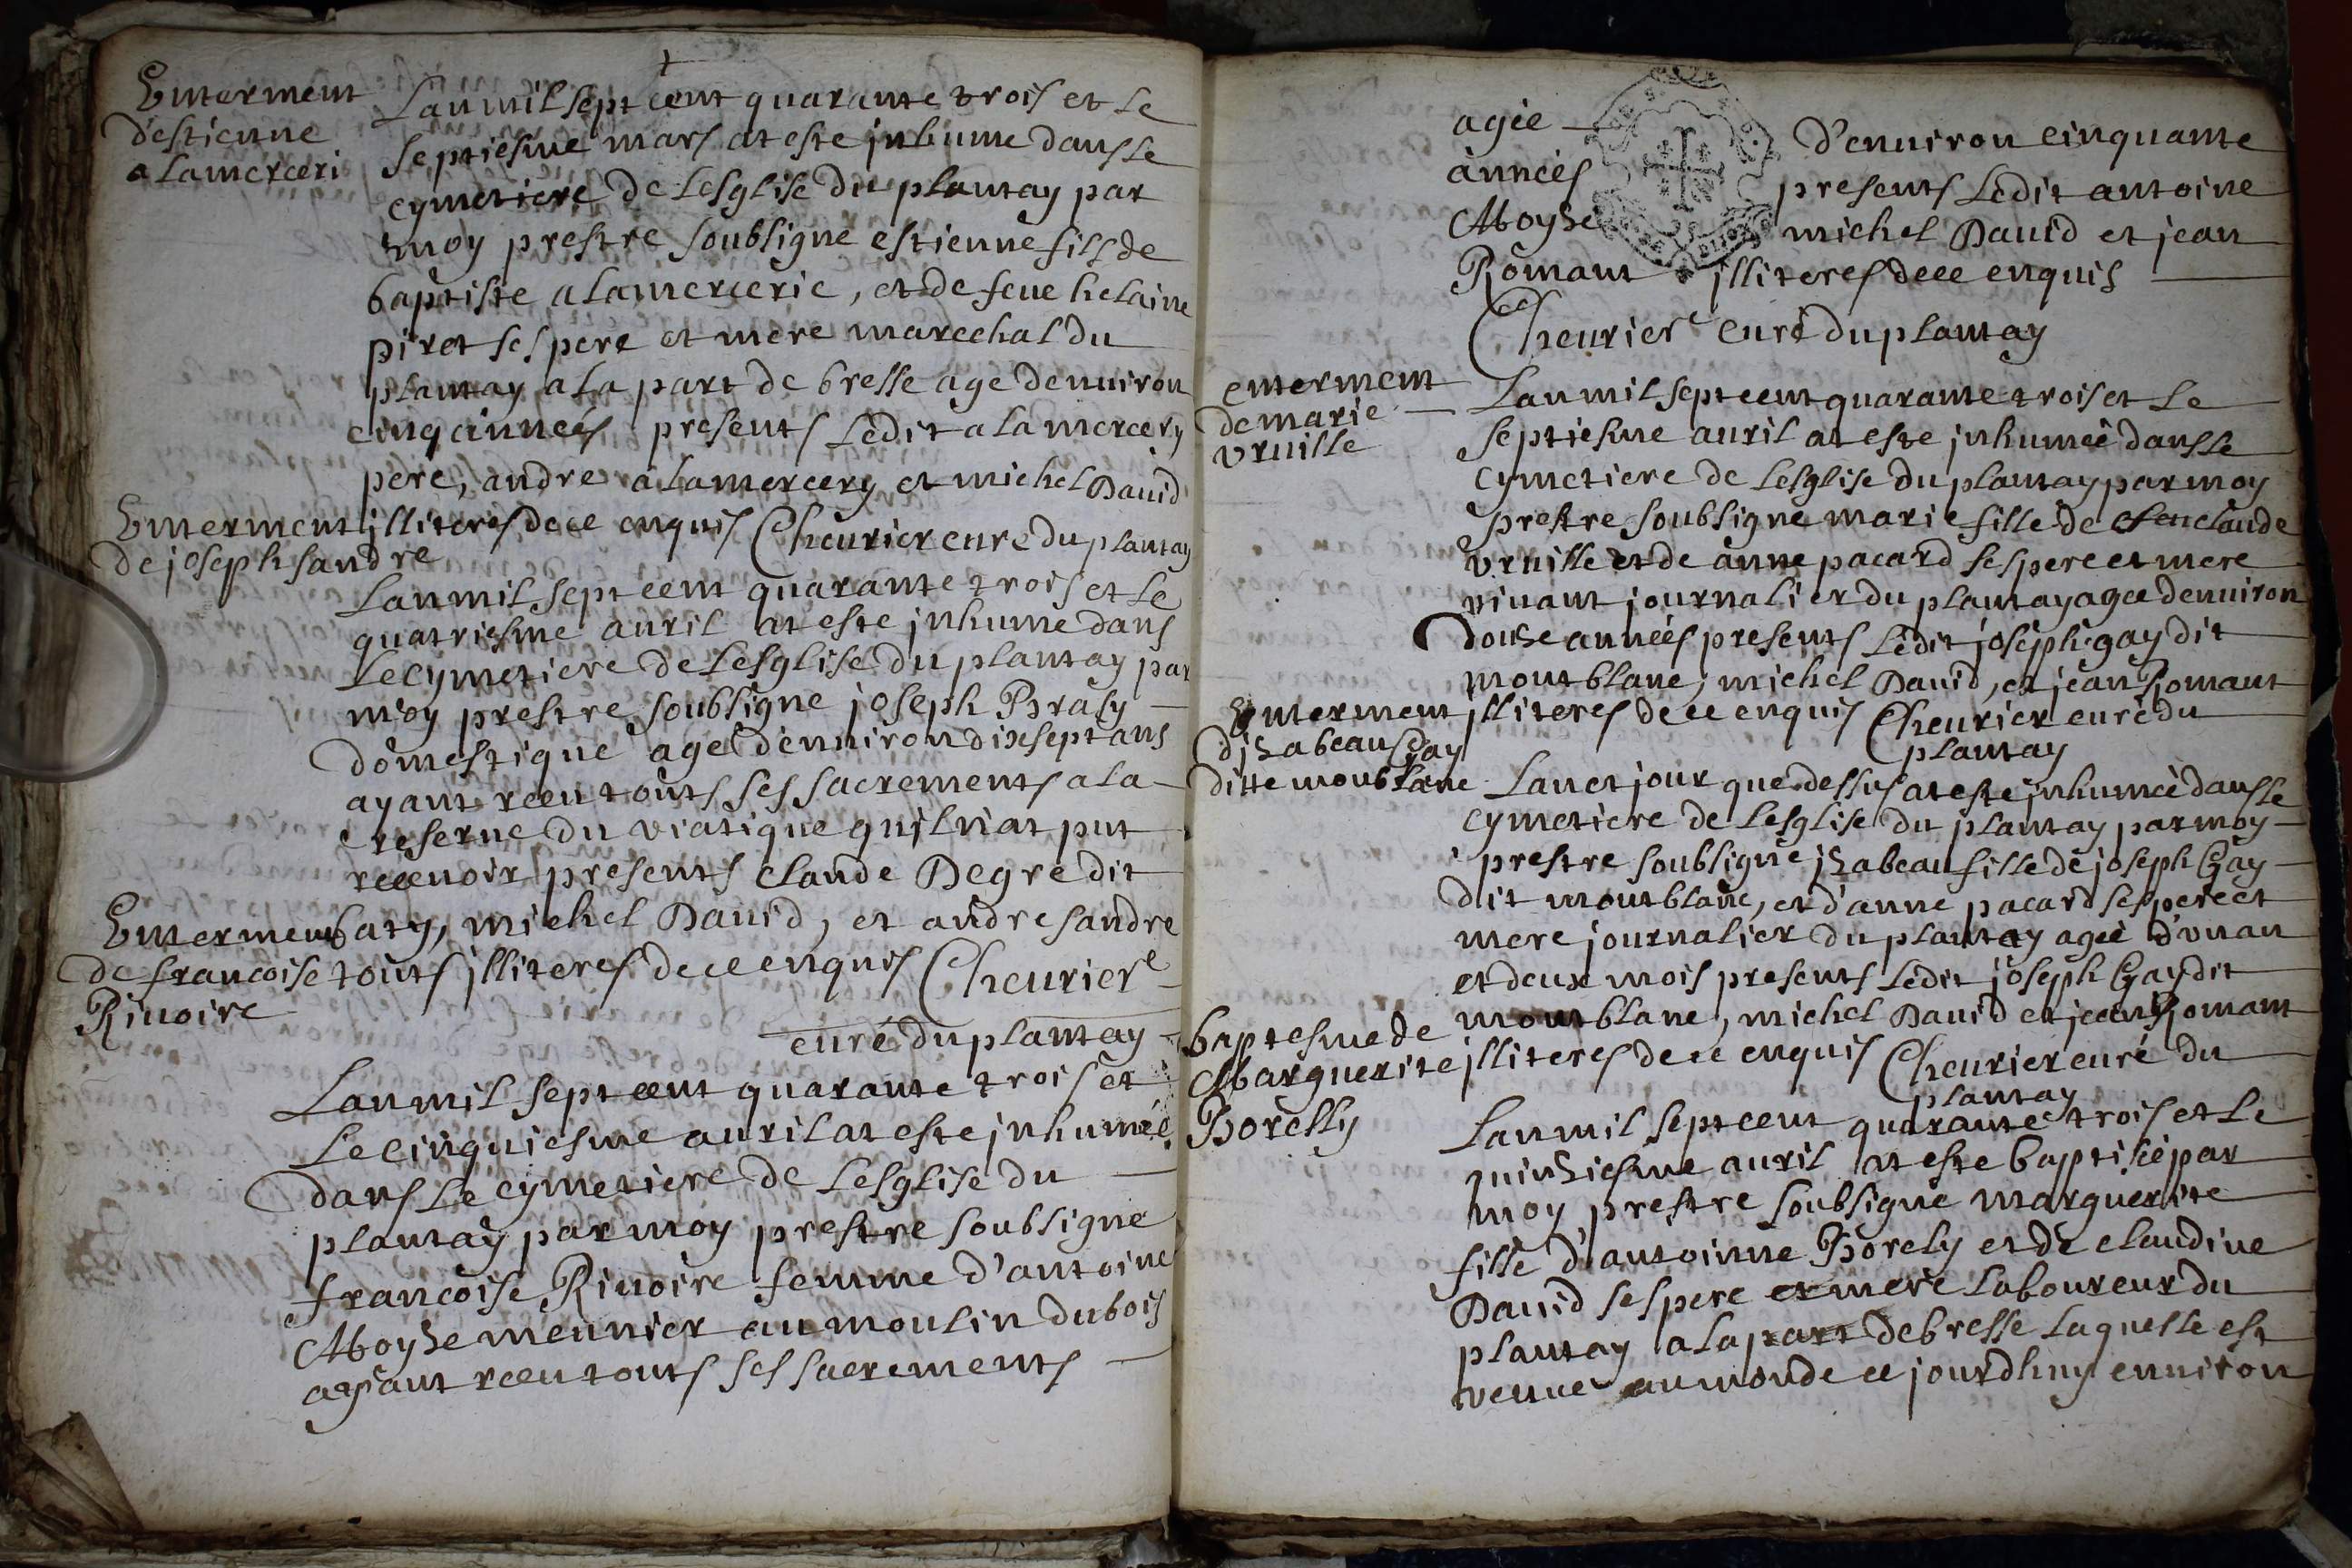 Enterment
d'estienne
a Lamerceri
Lan mil sept cent quarante trois et Le
septiesme mars at este jnhume dans Le
cymetiere de Lesglise du plantay par
moy prestre soubsigne estienne fils de
baptiste a Lamercerie, et de feue helaine
piret ses pere et mere marechal du
plantay a La part de bresse age denuiron
cinq années presents Ledit a Lamercery
pere, andre a Lamercery et michel Dauid
jlliteres de ce enquis Cheurier curé du plantay
Enterment
de joseph sandre
Lan mil sept cent quarante trois et Le
quatriesme auril at este jnhume dans
Le cymetiere de Lesglise du plantay par
moy prestre soubsigne joseph Brasy
domestique age denuiron dix sept ans
ayant receu touts ses sacrements a La
reserue du viatique quil n'at put
receuoir presents claude Degre dit
baty, michel Dauid, et andre sandre
touts jlliteres de ce enquis Cheurier
curé du plantay
Enterment
de francoise
Riuoire
Lan mil sept cent quarante trois et
Le cinquiesme auril at este jnhumée
dans Le cymetiere de Lesglise du
plantay par moy prestre soubsigne
francoise Riuoire femme d'antoine
Moyze meunier au moulin du bois
ayant receu touts ses sacrements
agée d'enuiron cinquante
années presents Ledit antoine
Moyze michel Dauid et jean
Romant jlliteres de ce enquis
Cheurier curé du plantay
enterment
de marie
vruille
Lan mil sept cent quarante trois et Le
septiesme auril at este jnhumée dans Le
cymetiere de Lesglise du plantay par moy
prestre soubsigne marie fille de feu claude
vruille et de anne pacard ses pere et mere
viuant journalier du plantay agee denuiron
douze années presents Ledit joseph gay dit
montblanc, michel Dauid, et jean Romant
jlliteres de ce enquis Cheurier curé du
plantay
Enterment
djzabeau Gay
ditte montblanc
Lan et jour que dessus at este jnhumée dans Le
cymetiere de Lesglise du plantay par moy
prestre soubsigne jzabeau fille de joseph Gay
dit montblanc, et d'anne pacard ses pere et
mere journalier du plantay agée d'un an
et deux mois presents Ledit joseph Gay dit
montblanc, michel Dauid et jean Romant
jlliteres de ce enquis Cheurier curé du
plantay
baptesme de
Marguerite
Borelly
Lan mil sept cent quarante trois et Le
quinziesme auril at este baptisée par
moy prestre soubsigne marguerite
fille d'antoinne Borely et de claudine
Dauid ses pere et mere Laboureur du
plantay a La part de bresse Laquelle est
venue au monde ce jourdhuy enuiron